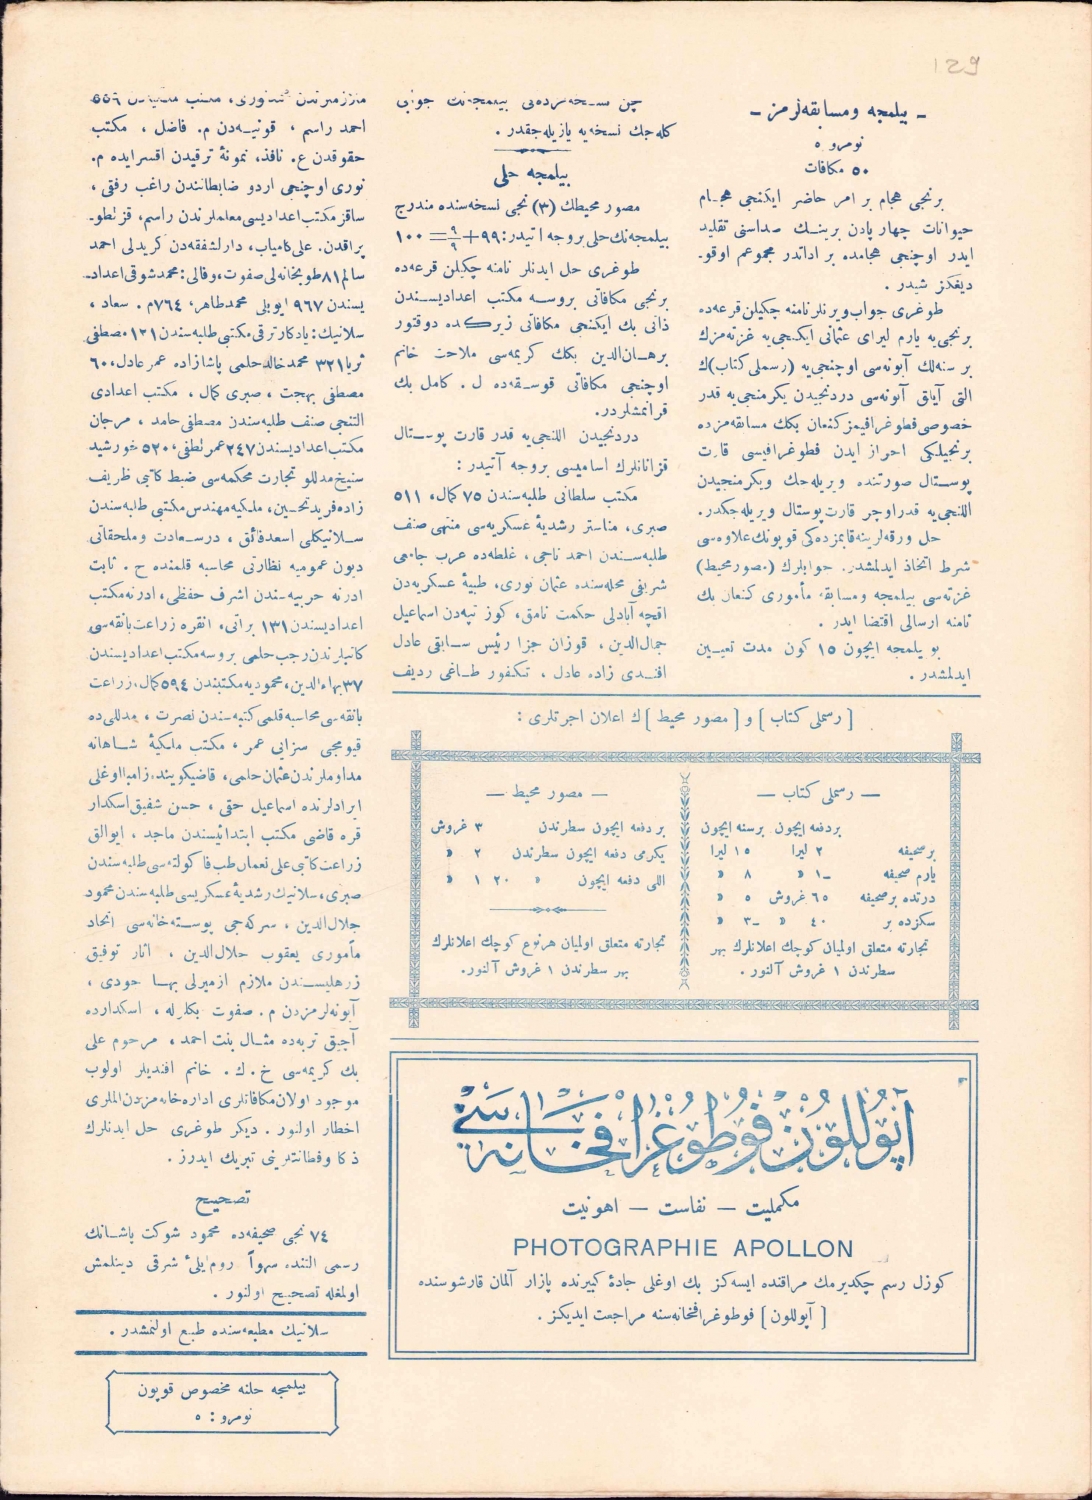 129
ـ بیلمجه ومسابقه‌لرمز ـ
نومرو ٥
٥٠ مکافات
برنجی هجام بر امر حاضر ایکنجی هجام
حیوانات چهار پادن برینك صداسنی تقلید
ایدر اوچنجی هجامده بر اداتدر مجموعم اوقو۔
دیغکز شیدر .
طوغری جواب ویرنلر نامنه چکیلن قرعه‌ده
برنجی‌یه یارم لیرای عثمانی ایکنجی‌یه غزته‌مزك
بر سنه‌لك آبونه‌سی اوچنجی‌یه (رسملی کتاب)ك
التی آیلق آبونه‌سی دردنجیدن یکرمنجی‌یه قدر
خصوصی فطوغرافیمز کنعان بکك مسابقه‌مزده
برنجیلکی احراز ایدن فطوغرافیسی قارت
پوستال صورتنده ویریله‌جك ویکرمنجیدن
اللنجی‌یه قدر اوچر قارت پوستال ویریله‌جکدر.
حل ورقه‌لرینه قابمزده‌کی قوپونك علاوه‌سی
شرط اتخاذ ایدلمشدر. جوابلرك (مصور محیط)
غزته‌سی بیلمجه ومسابقه مأموری کنعان بك
نامنه ارسالی اقتضا ایدر .
بو بیلمجه ایچون ١٥ کون مدت تعیین
ایدلمشدر .
کله‌جك نسخه‌یه یازیله‌جقدر .
بیلمجه حلی
مصور محیطك (٣) نجی نسخه‌سنده مندرج
بیلمجه‌نك حلی بروجه آتیدر: ٩٩+٩/٩=١٠٠
طوغری حل ایدنلر نامنه چکیلن قرعه‌ده
برنجی مکافاتی بروسه مکتب اعدادیسندن
ذانی بك ایکنجی مکافاتی زیرکده دوقتور
برهان‌الدین بكك کریمه‌سی ملاحت خانم
اوچنجی مکافاتی قوسقه‌ده ل . کامل بك
قزانمشلردر.
دردنجیدن اللنجی‌یه قدر قارت پوستال
قزانانلرك اسامیسی بروجه آتیدر :
مکتب سلطانی طلبه‌سندن ٧٥ کمال، ٥١١
صبری، مناستر رشدیهٔ عسکریه‌سی منتهی صنف
طلبه‌سندن احمد ناجی، غلطه‌ده عرب جامعی
شریفی محله‌سنده عثمان نوری، طبیهٔ عسکریه‌دن
اقچه آبادلی حکمت نامق، کوز تپه‌دن اسماعیل
جمال‌الدین ، قوزان جزا رئیس سابقی عادل
افندی زاده عادل ، تکفور طاغی ردیف
احمد راسم ، قونیه‌دن م. فاضل ، مکتب
حقوقدن ع. نافذ، نمونهٔ ترقیدن اقسرایده م.
نوری اوچنجی اردو ضابطانندن راغب رفقی ،
ساقز مکتب اعدادیسی معلملرندن راسم، قزنطو۔
پراقدن. علی کامیاب، دارلشفقه‌دن کریدلی احمد
سالم ٨١ طوپخانه‌لی صفوت، وفالی: محمد شوقی اعداد۔
یسندن ٩٦٧ ایوبلی محمد طاهر، ٧٦٤ م . سعاد ،
سلانیك: یادکار ترقی مکتبی طلبه‌سندن ١٣١ مصطفی
ثریا ٣٢١ محمد خالد حلمی پاشازاده عمر عادل، ٦٠
مصطفی بهجت ، صبری کمال ، مکتب اعدادی
التنجی صنف طلبه‌سندن مصطفی حامد ، مرجان
مکتب اعدادیسندن ٢٤٧ عمر لطفی، ٥٢٠ خورشید
تجارت محکمه‌سی ضبط کاتبی ظریف
زاده فرید تحسین، ملکیه مهندس مکتبی طلبه‌سندن
سلانیکلی اسعد فائق ، درسعادت وملحقاتی
دیون عمومیه نظارتی محاسبه قلمنده ح . ثابت
ادرنه حربیه‌سندن اشرف حفظی، ادرنه مکتب
اعدادیسندن ١٣١ برانی، انقره زراعت بانقه‌سی
کاتبلرندن رجب حلمی بروسه مکتب اعدادیسندن
٣٧ بهاءالدین، محمودیه مکتبندن ٥٩٤ کمال، زراعت
بانقه‌سی محاسبه قلمی کتبه‌سندن نصرت ، مدللی‌ده
قیومجی سزایی عمر ، مکتب ملکیهٔ شاهانه
مداوملرندن عثمان حلمی، قاضیکوینده
ایرادلرنده اسماعیل حقی ، حسن شفیق اسکدار
قره قاضی مکتب ابتدائیسندن ماجد ، ایوالق
زراعت کاتبی علی نعمان طب فاکولته‌سی طلبه‌سندن
صبری، سلانیك رشدیهٔ عسکریسی طلبه‌سندن محمود
جلال‌الدین ، سرکه‌جی پوسته‌خانه‌سی اتحاد
مأموری یعقوب جلال‌الدین ، اثار توفیق
زرهلیسندن ملازم ازمیرلی بها جودی ،
آبونه‌لرمزدن م . صفوت بکلرله ، اسکدارده
آچیق تربه‌ده منال بنت احمد ، مرحوم علی
بك کریمه‌سی خ . ك . خانم افندیلر اولوب
موجود اولان مکافاتلری اداره‌خانه‌مزدن الملری
اخطار اولنور . دیکر طوغری حل ایدنلرك
ذکا وفطانتلرینی تبریك ایدرز .
تصحیح
٧٤ نجی صحیفه‌ده محمود شوکت پاشانك
رسمی التنده سهواً روم ایلیٔ شرقی دینلمش
اولمغله تصحیح اولنور .
سلانیك مطبعه‌سنده طبع اولنمشدر .
بیلمجه حلنه مخصوص قوپون
نومرو : ٥
[ رسملی کتاب ] و [ مصور محیط ] ك اعلان اجرتلری :
— رسملی کتاب —
بردفعه ایچون برسنه ایچون
برصحیفه ٢ لیرا ١٥ لیرا
یارم صحیفه ١ـ « ٨ «
درتده برصحیفه ٦٥ غروش ٥ «
سکزده بر ٤٠ « ٣ـ «
تجارته متعلق اولمیان کوچك اعلانلرك بهر
سطرندن ١ غروش آلنور .
— مصور محیط —
بر دفعه ایچون سطرندن ٣ غروش
یکرمی دفعه ایچون سطرندن ٢ «
اللی دفعه ایچون « ٢٠ ١ «
تجارته متعلق اولمیان هرنوع کوچك اعلانلرك
بهر سطرندن ١ غروش آلنور.
آپوللون فوطوغرافخانه‌سی
مکملیت — نفاست — اهونیت
PHOTOGRAPHIE APOLLON
کوزل رسم چکدیرمك مراقنده ایسه‌کز بك اوغلی جادهٔ کبیرنده پازار آلمان قارشوسنده
[ آپوللون ] فوطوغرافخانه‌سنه مراجعت ایدیکز .